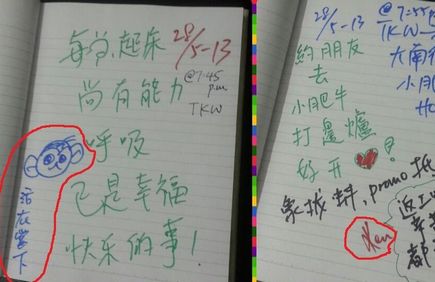 每当起床
28/5-13
尚有能力
@7:45
p.m
TKW
呼吸
已是幸福
快乐的事!
活在當下
28/5-13
@7:55p
TKW
約朋友
去
小肥牛
打邊爐
好开❤!
大南
小肥
象拔蚌, promo
Ken
返工
都